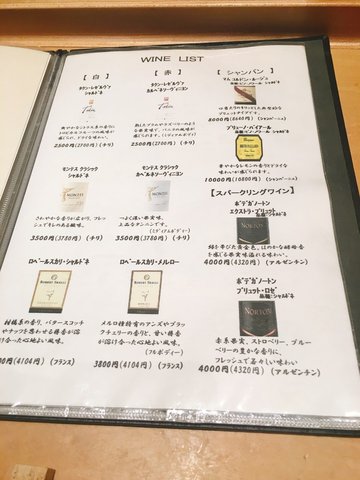 WINE LIST
【 白 】
タラシ・レゼルヴァ
シャルドネ
2500円(2700円)(チリ)
モンテス クラシック
シャルドネ
MONTES
さわやかな香りが広がり、フレ
ッシュでキレのある酸味。
3500円(3780円)(チリ)
ロベールスカリ・シャルドネ
ROBERT SKALLI
柑橘系の香り、バタースコッチ
やナッツを思わせる樽香が
溶け合った心地よい風味。
(4104円)(フランス)
【 赤 】
カベルネソーヴィニヨン
2500円(2700円)(チリ)
モンテス クラシック
カベルネソーヴィニヨン
MONTES
つよく濃い果実味。
上品なタンニンです。
(ミディアムボディー)
3500円(3780円)(チリ)
ロベールスカリ・メルロー
ROBERT SKALLI
メルロ種特有のアンズやブラッ
クチェリーの香り、甘い樽香が
溶け合った心地よい風味。
(フルボディー)
3800円(4104円)(フランス)
【 シャンパン 】
8000円(8640円)(シャンパーニュ)
ブリューノ・パイアール
華やかなレモンの香りとドライな
味わいが感じられます。
10000円(10800円)(シャンパーニュ)
【スパークリングワイン】
ボデガ ノートン
エクストラ・ブリュット
NORTON
緑を帯びた黄金色、ほのかな酵母香
を感じる果実溢れる味わい。
4000円(4320円)(アルゼンチン)
ボデガ ノートン
ブリュット・ロゼ
NORTON
赤系果実、ストロベリー、ブルー
ベリーの豊かな香りに、
フレッシュで若々しい味わい
4000円(4320円)(アルゼンチン)